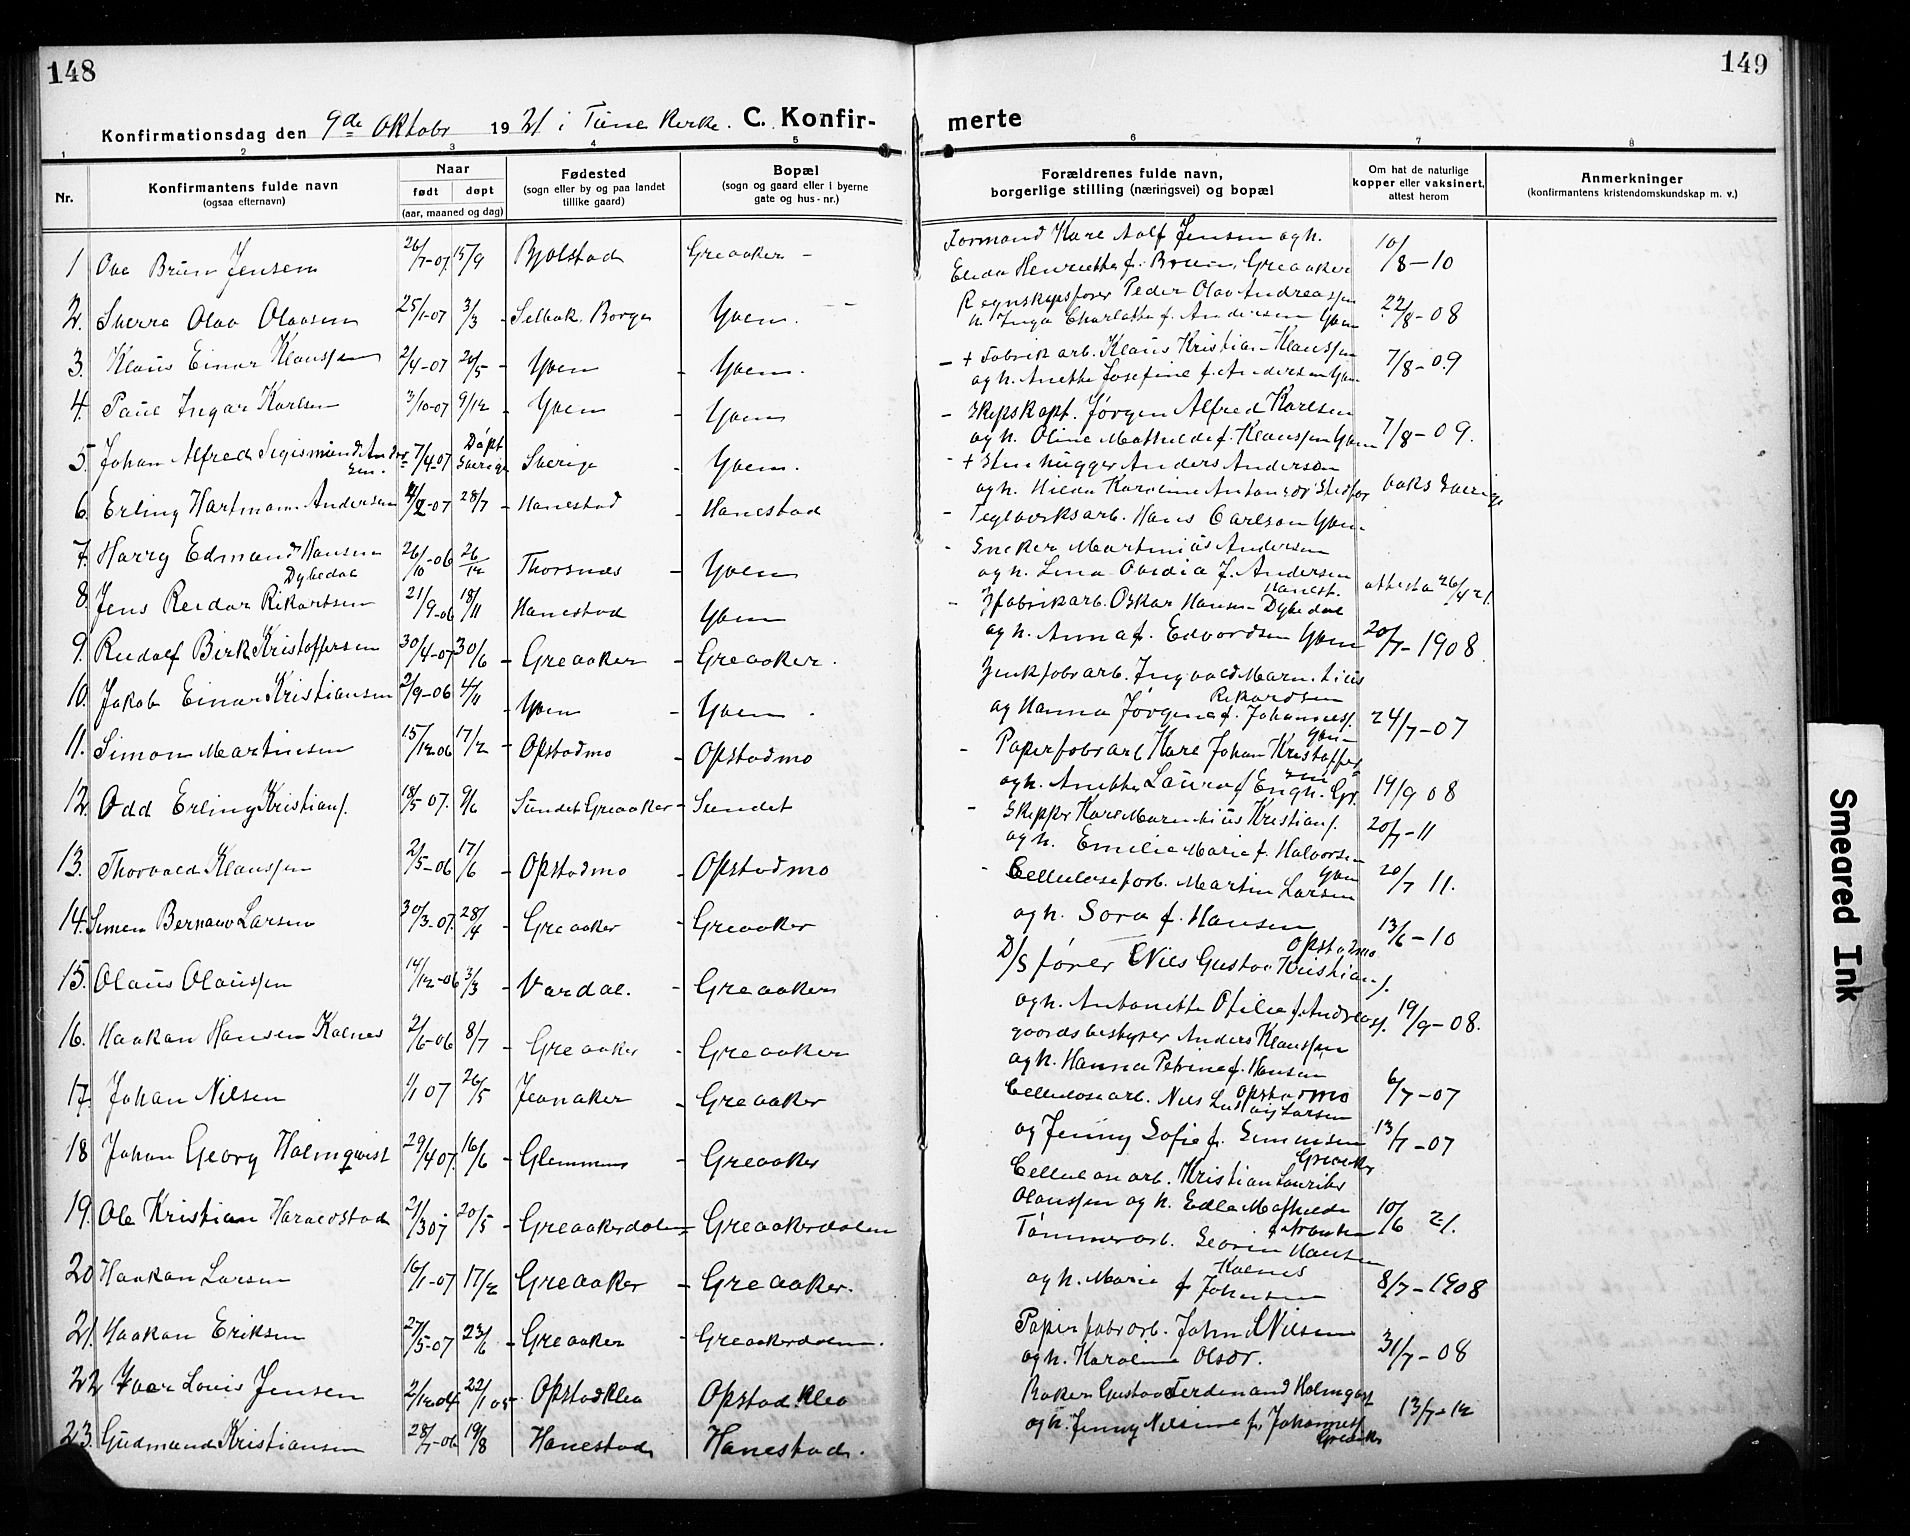 148
Konfirmationsdag den 9de Oktobr 1921 i Tune Kirke. C. Konfir-
1 2 3 4 5
Nr.
Konfirmantens fulde navn
(ogsaa efternavn)
Naar
født døpt
(aar, maaned og dag)
Fødested
(sogn eller by og paa landet
tillike gaard)
Bopæl
(sogn og gaard eller i byerne
gate og hus-nr.)
1 Ove Brun Jensen 26/7-07 15/9 Bjolstad Greaaker -
2. Sverre Olav Olavsen 25/1-07 3/3 - Selbak. Borge Ibem. -
3. Klaus Einar Klaussen 2/4-07 20/5 - Ibem - Ibem.
4. Paul Ingar Karlsen 3/10-07 9/12 - Ibem - Ibem.
5. Johan Alfred Sigismund Ander
sen. 7/4-07 Døpt Sverige - Sverige - Ibem.
6. Erling Hartmann Andersen 4/2-07 28/7 - Hanestad - Hanestad
7. Harry Edmand Hansen
Dybedal 26/10-06 26/12 - Thorsnes - Ibem
8. Jens Reidar Rikartsen 21/9-06 18/11 - Hanestad Ibem
9. Rudolf Birk Kristoffersen 30/4-07 30/6 - Greaaker - Greaaker.
10. Jakob Einar Kristiansen 2/9-06 4/11 - Ibem - Ibem.
11. Simon Martinsen 15/12-06 17/2 - Opstadmo - Opstadmo
12. Odd Erling Kristians. 18/5-07. 9/6 - Sundet Greaaker - Sundet
13. Thorvald Klaussen 2/5-06 17/6 - Opstadmo - Opstadmo
14. Simen Larsen 30/3-07. 28/4 - Greaaker - Greaaker
15. Olaus Olaussen 14/12-06 3/3 - Vardal. - Greaaker
16. Haakon Hansen Kalnes 2/6-06 8/7 - Greaaker - Greaaker
17. Johan Nilsen 1/1 07 26/5 - - Greaaker
18 Johan Georg Holmqvist 29/4 07. 16/6 - Glemmen - Greaaker
19. Ole Kristian Haraldstad 21/3 07 20/5 - Greaakerdalen - Greaakerdalen
20 Haakon Larsen 16/1-07 17/2 Greaaker - Greaaker.
21. Haakon Eriksen 27/5-07 23/6 - Greaaker - Greaakerdalen.
22 Ivar Louis Jensen 2/12-04 22/1 05 - Opstadkleo Opstadkleo
23. Gudmund Kristiansen 28/7-06 19/8 - Hanestad Hanestad.
149
merte
6 7 8
Forældrenes fulde navn,
borgerlige stilling (næringsvei) og bopæl
Om hat de naturlige
kopper eller vaksinert,
attest herom
Anmerkninger
(konfirmantens kristendomskundskap m. v.)
Formand Karl Adolf Jensen og h.
Henriette f. Bruun, Greaaker 10/8-10
Regnskapsfører Peder Olav Andreassen
h. Inga Charlotte f. Andersen Ibem 22/8-08
- + Fabrikarb. Klaus Kristian Klaussen
og h. Anette Josefine f. Andersen Ibem 7/8-09
- Skipskapt. Jørgen Alfred Karlsen
og h. Oline Mathilde f. Klaussen Ibem 7/8-09.
- + Stenhugger Anders Anderson
og h. Hilda Karoline Antonsdr vaks Sverige
- Teglverksarb. Hans Carlson Ibem
- Snekker Martinius Andersen
og h. Lina Ovidia f. Andersen
Hanest. attesta 26/4 21.
- fabrikarb. Oskar Hansen Dybedal
og h. Anna f. Edvardsen Ibem 20/7-1908.
Zinkfabrarb. Ingvald Marentius
Rikardsen
og Hanna Jørgine f. Johanness.
Ibem 24/7-07
- Papirfabrarb Karl Johan Kristoffer
sen
og h. Anette Laura f Engh. Gr. 19/9 08
- Skipper Karl Marentius Kristians.
og h. Emilie Marie f. Halvorsen
Ibem 20/7-11
- Cellulosefarb. Martin Larsen 20/7 11.
og h. Sora f. Hansen
Opstadmo 13/6-10
D/S fører Nils Gustav Kristians.
og h. Antonette Otilie f. Andreass. 19/9-08.
gaardsbestyrer Anders Klaussen
og h. Hanna Petrine f. Hansen
Opstadmo 6/7-07
Cellulosearb. Nils Ludvig Larsen
og Jenny Sofie f. Simensen
Greaaker 13/7-07
Cellulosearb. Kristian Lauritz
Olaussen og h. Edle Mathilde
10/6 21.
Tømmerarb. Georg Hansen
Kalnes
og h. Marie f Johansen 8/7-1908
Papirfabrarb. Johan Nilsen
og h. Karoline Olsdr. 31/7-08
Baker Gustav Ferdinand Holmqvist
og h. Jenny Nilsine f. Johanness.
Greaaker 13/7-12
Smeared Ink